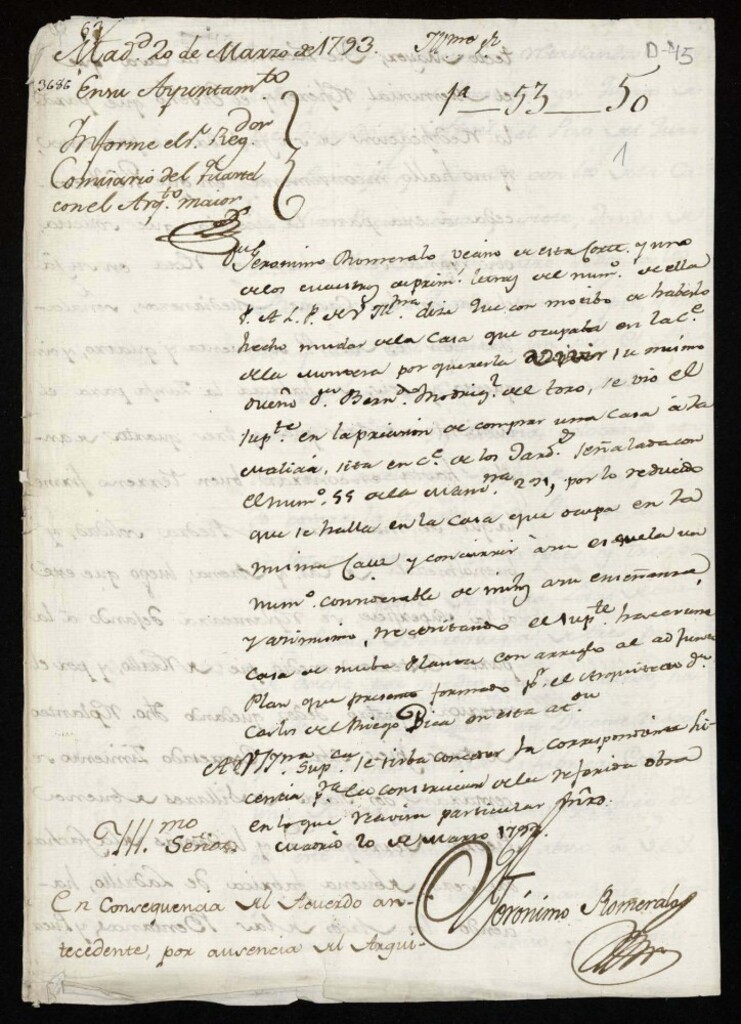 63
Mad.d 20 de Marzo de 1793.
Yllmo Sr
D-45
3686
En su Ayuntam.to
1a—53—50
1
Informe el S.r Reg.dor
Comisario del Quartel
con el Arq.to maior
Jeronimo Romeralo vecino de esta Corte, y uno
de los Maestros de prim.s letras del num.o de ella
P. A L. P. de V. Yllma dize Que con motibo de haberlo
hecho mudar de la Casa que ocupaba en la C.e
de la Montera por quererla vivir su mismo
dueño d.n Bern.do Rodrig.z del toro, se vio el
sup.te en la precision de comprar una Casa á la
malicia, sita en C.e de los Jard.s señalada con
el num.o 55 de la Manz.na 291, por lo reducido
que se halla en la Casa que ocupa en la
misma Calle y concurrir à su esquela un
num.o considerable de niños a su enseñanza,
y asimismo, necesitando el sup.te hacer una
Casa de nueba Planta con arreglo al adjunto
Plan que presenta formado p.r el Arquitecto d.n
Carlos del Riego Pica en esta at.on
A V. Yma Sup.ca se sirba conceder la correspondiente li-
cencia p.ra la construcion de la referida obra
en lo que recivira particular fabor.
Madrid 20 de Marzo 1793.
Yll.mo
Señor
Jerónimo Romeralo
En Consequencia del Acuerdo an-
tecedente, por ausencia del Arqui-